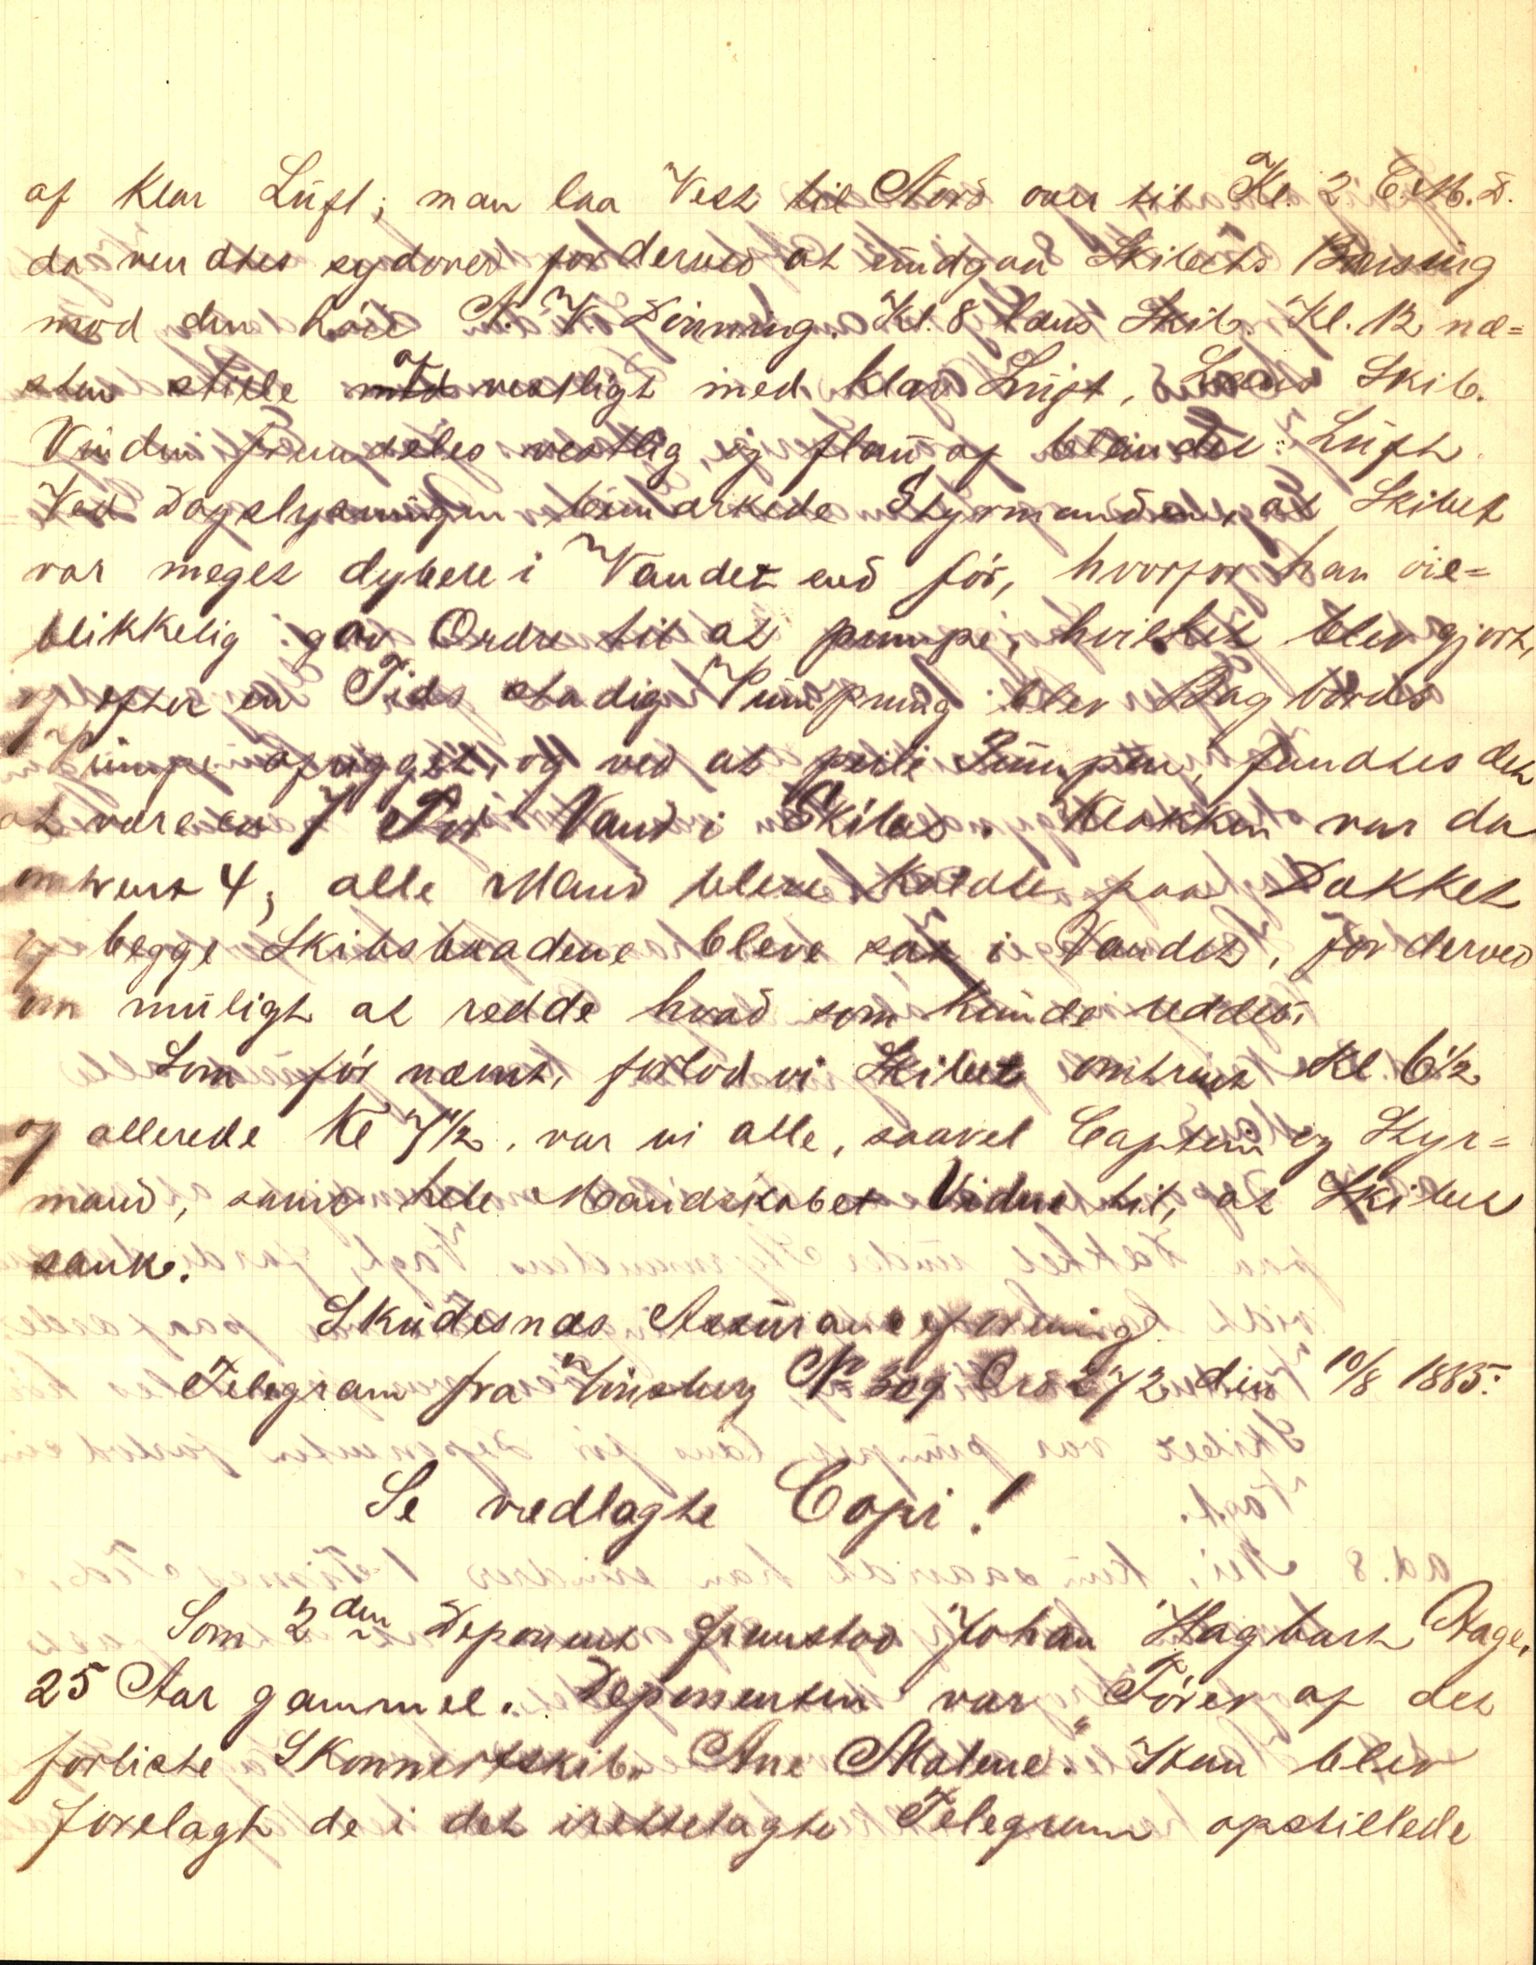 af klar Luft; man laa Vest til Nord over til Kl. 2 E.M.D.
da vendtes sydover for derved at undgaa Skibets Brusing
mod den høie N.V. Dinning. Kl. 8 læns Skib. Kl. 12 næ=
sten stille af vestligt med klar Luft, Læns Skib.
Vinden fremdeles vestlig og flau af blandet Luft
Ved Dagslysningen bemærkede Styrmanden, at Skibet
var meget dybere i Vandet end før, hvorfor han øie=
blikkelig gav Ordre til at pumpe, hvilket blev gjort,
og efter en Tids stadig Pumpning blev Bagbords
Pumpe afrigget, og ved at peile Pumpen, fandtes det
at være en 7 Fod Vand i Skibet. Klokken var da
omtrent 4; alle Mand bleve kaldte paa Dækket
og begge Skibsbaadene bleve sat i Vandet, for derved
om muligt at redde hvad som kunde reddes.
Som før nævnt, forlod vi Skibet omtrent Kl. 6½
og allerede Kl 7½, var vi alle, saavel Captein og Styr=
mand, samt hele Mandskabet Vidne til, at Skibet
sank.
Skudesnæs Assuranceforening
Telegram fra Tönsberg No 309 Ord 272 den 10/8 1885.
Se vedlagte Copi!
Som 2den Deponent fremstod Johan Hagbart Aage,
25 Aar gammel. Deponenten var Fører af det
forliste Skonnertskib "Ane Malene". Han blev
forelagt de i det irettelagte Telegram opstillede